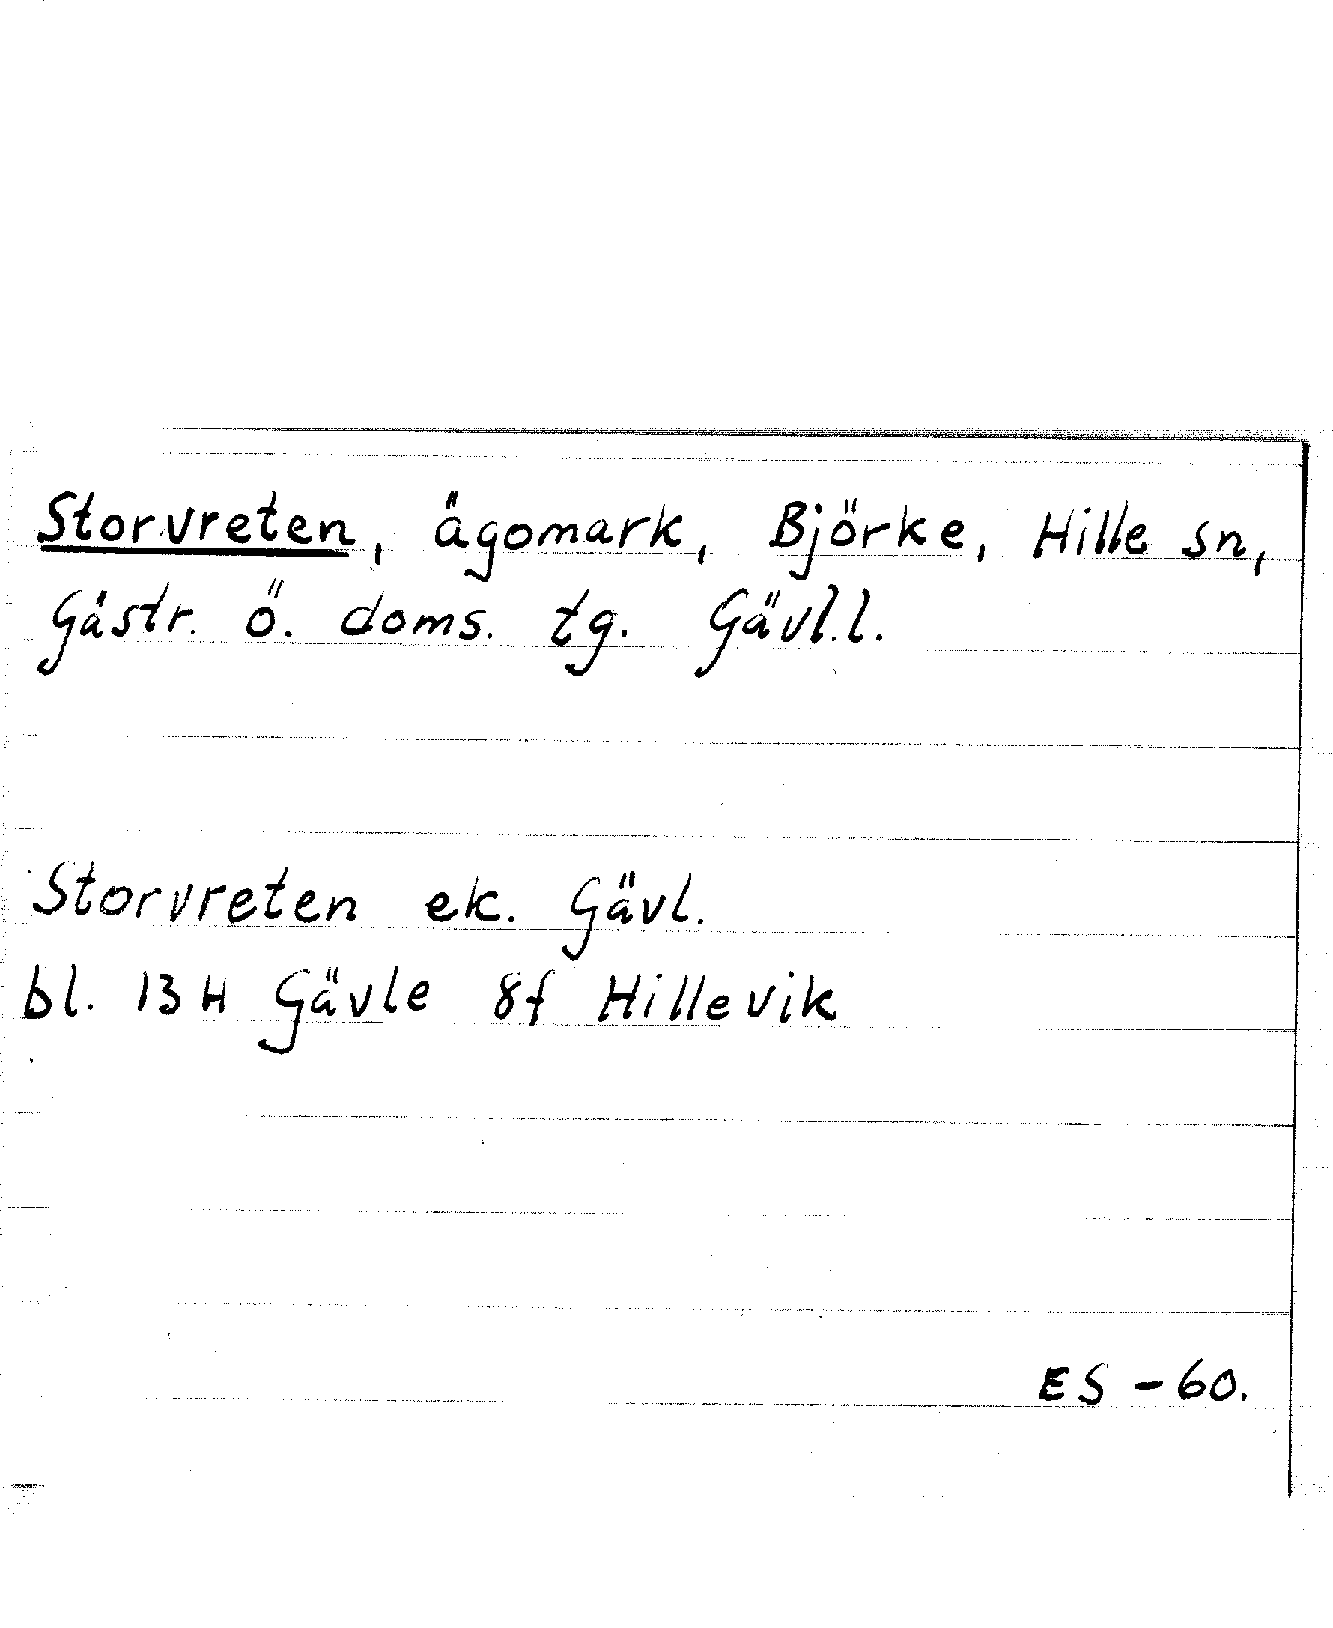 Storvreten, ägomark, Björke, Hille sn,
Gästr. Ö. doms. tg. Gävl.l.
Storvreten ek. Gävl.
bl. 13 H Gävle 8f Hillevik
ES - 60.